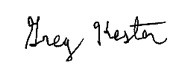 Greg Kester